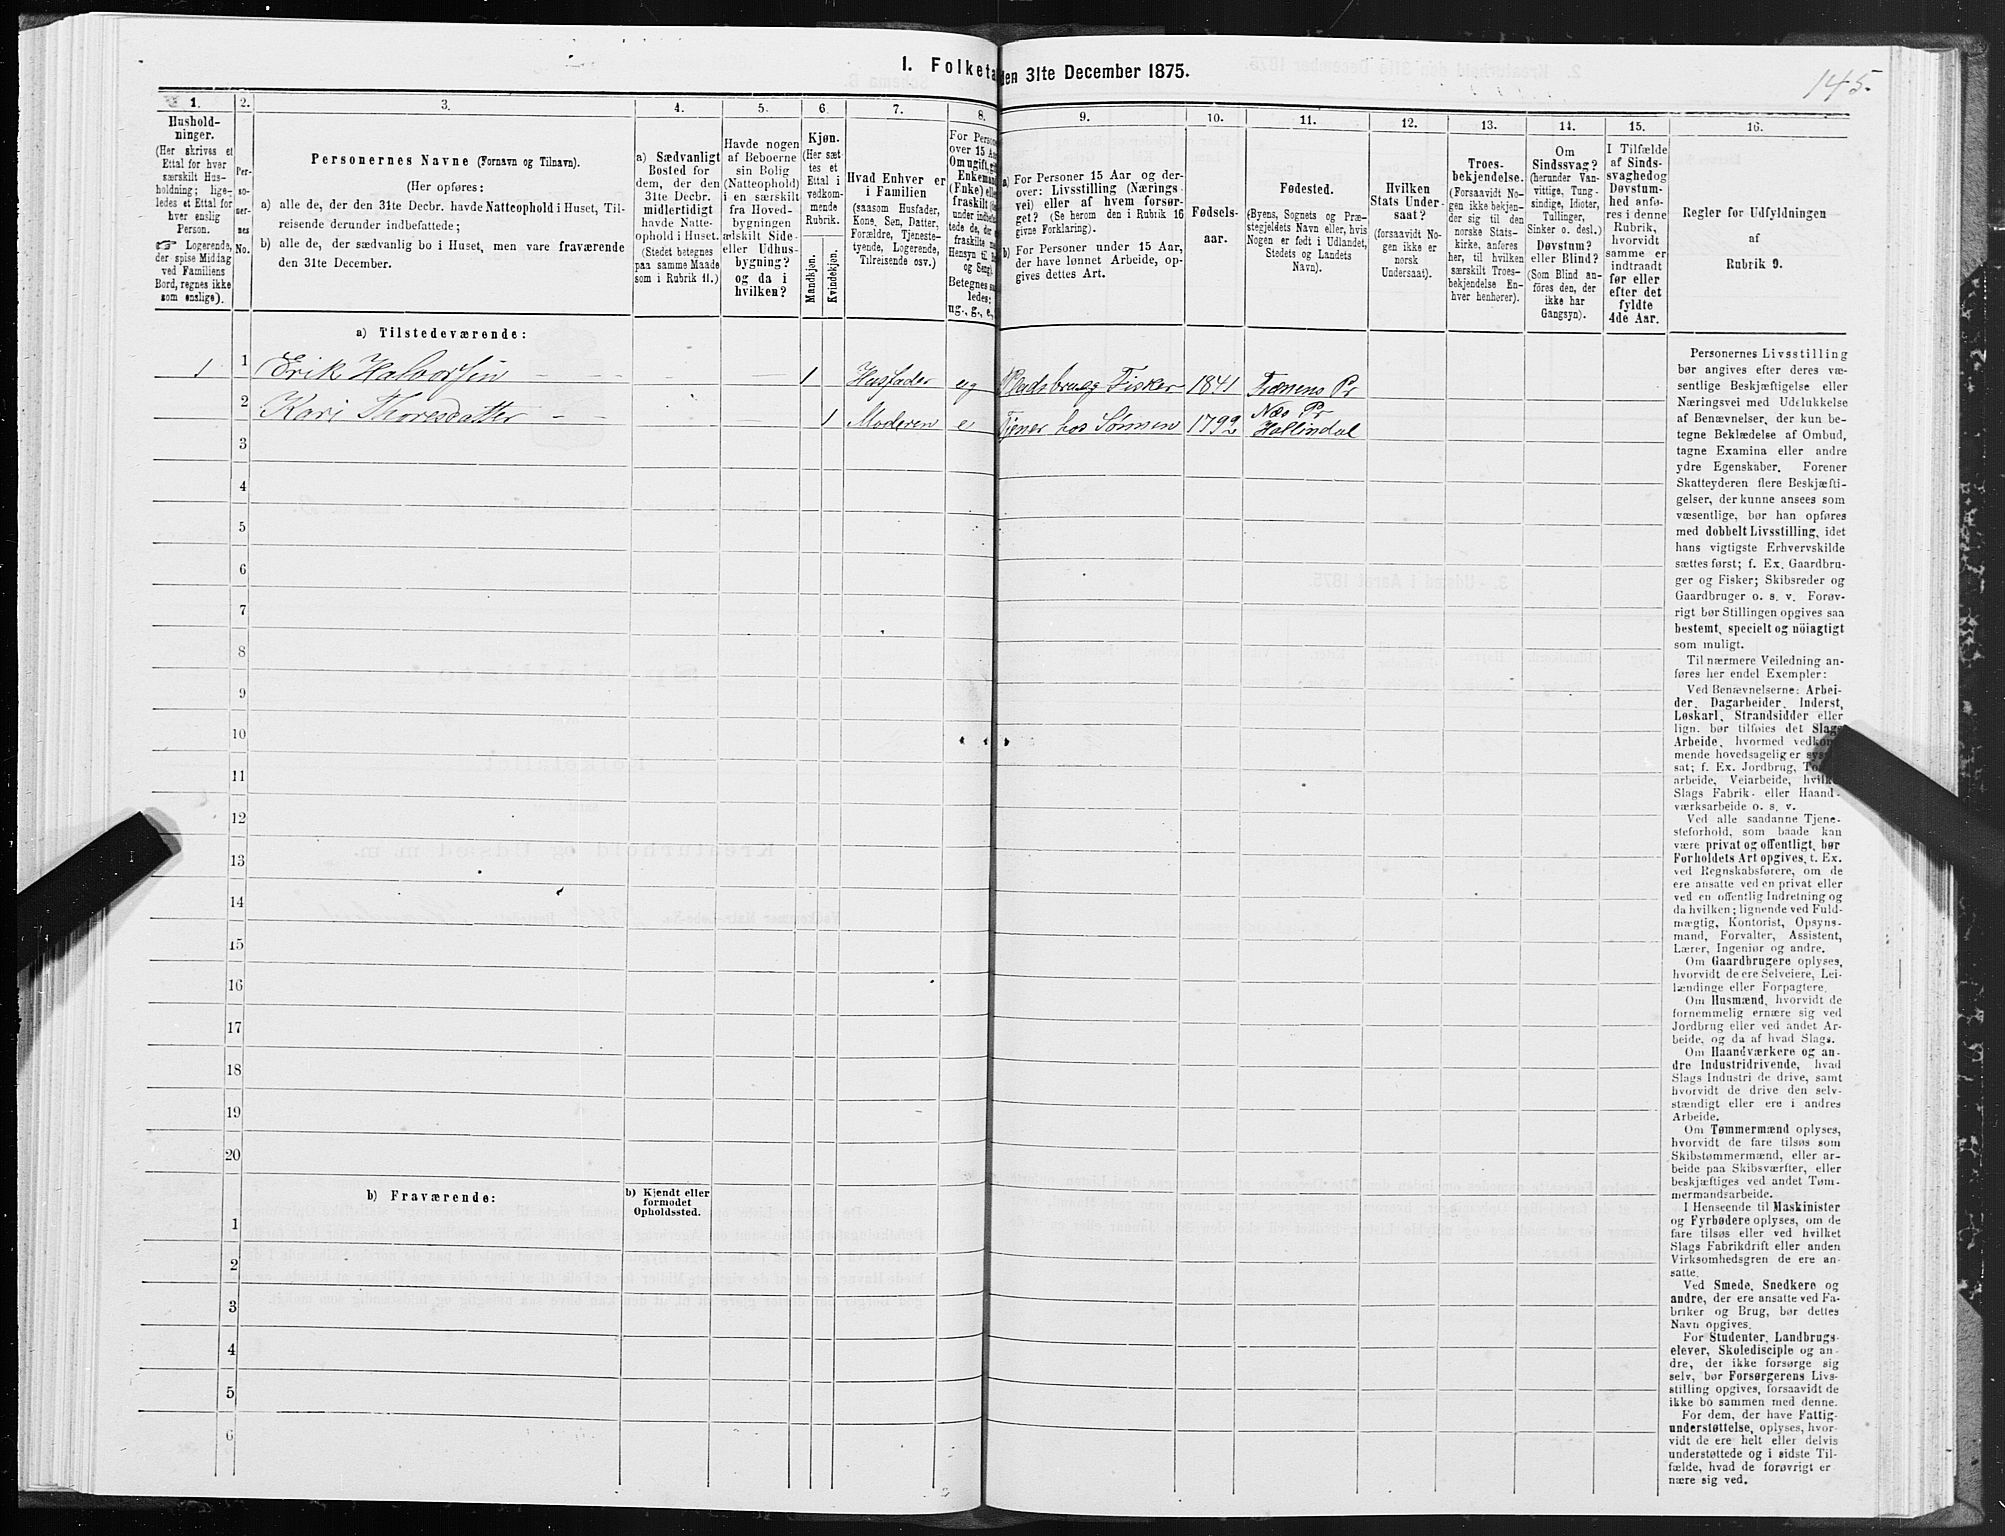 1. Folketæ
den 31te December 1875.
145.
1.
2.
3.
4.
5.
6.
7.
8.
9.
10.
11.
12.
13.
14.
15.
16.
Hushold-
ninger.
(Her skrives et
Ettal for hver
særskilt Hus-
holdning; lige-
ledes et Ettal for
hver enslig
Person.
☞ Logerende,
der spise Middag
ved Familiens
Bord, regnes ikke
som enslige).
Per-
so-
ner-
nes
No.
Personernes Navne (Fornavn og Tilnavn).
(Her opføres:
a) alle de, der den 31te Decbr. havde Natteophold i Huset, Til-
reisende derunder indbefattede;
b) alle de, der sædvanlig bo i Huset, men vare fraværende
den 31te December.
a) Sædvanligt
Bosted for
dem, der den
31te Decbr.
midlertidigt
havde Natte-
ophold i Huset.
(Stedet betegnes
paa samme Maade
som i Rubrik 11.)
Havde nogen
af Beboerne
sin Bolig
(Natteophold)
i en særskilt
fra Hoved-
bygningen
adskilt Side-
eller Udhus-
bygning?
og da i
hvilken?
Kjøn.
(Her sæt
tes et
Ettal i
vedkom-
mende
Rubrik.
Mandkjøn.
Kvindekjøn.
Hvad Enhver er
i Familien
(saasom Husfader,
Kone, Søn, Datter,
Forældre, Tjeneste-
tyende, Logerende,
Tilreisende osv.)
For Person
over 15 Aa
Om ugift, gif
Enkeman
(Enke) elle
fraskilt (
under indbef
tede de, de
fraskilte
Hensyn til B
og Seng).
Betegnes
ledes:
ug., g., e.,
a) For Personer 15 Aar og der-
over: Livsstilling (Nærings
vei) eller af hvem forsør-
get? (Se herom den i Rubrik 16
givne Forklaring).
b) For Personer under 15 Aar,
der have lønnet Arbeide, op-
gives dettes Art.
Fødsels-
aar.
Fødested.
(Byens, Sognets og Præ-
stegjeldets Navn eller, hvis
Nogen er født i Udlandet,
Stedets og Landets
Navn).
Hvilken
Stats Under-
saat?
(foruaavidt No-
gen ikke er
norsk
Undersaat).
Troes-
bekjendelse.
(Forsaavidt No-
gen ikke bekjen-
der sig til den
norske Stats-
kirke, anføres
her, til hvilken
særskilt Troes-
bekjendelse En-
hver henhører).
Om
Sindssvag?
(herunder Van-
vittige, Tung-
sindige, Idioter,
Tullinger,
Sinker o. desl.)
Døvstum?
eller Blind?
(Som Blind an-
føres den, der
ikke har
Gangsyn).
I Tilfælde
af Sinds-
svaghed og
Døvstum-
hed anfø-
res i denne
Rubrik,
hvorvidt
samme er
indtraadt
før eller
efter det
fyldte
4de Aar.
Regler for Udfyldningen
af
Rubrik 9.
a) Tilstedeværende:
1 1 Erik Halvorsen 1 Husfader ug Fisker 1841 Tranens Pr
2 Kari Thoresdatter 1 Moderen e Tjener hos Sønnen 1792 Næs Pr
Hallindal
3
4
5
6
7
8
9
10
11
12
13
14
15
16
17
18
19
20
b) Fraværende:
b) Kjendt eller
formodet
Opholdssted.
1
2
3
4
5
6
Personernes Livsstilling
bør angives efter deres væ-
sentlige Beskjæftigelse eller
Næringsvei med Udelukkelse
af Benævnelser, der kun be-
tegne Beklædelse af Ombud,
tagne Examina eller andre
ydre Egenskaber. Forener
Skatteyderen flere Beskjæfti-
gelser, der kunne ansees som
væsentlige, bør han opføres
med dobbelt Livsstilling, idet
hans vigtigste Erhvervskilde
sættes først; f. Ex. Gaardbru-
ger og Fisker; Skibsreder og
Gaardbruger o. s. v. Forøv-
rigt bør Stillingen opgives saa
bestemt, specielt og nöiagtigt
som muligt.
Til nærmere Veiledning an-
føres her endel Exempler:
Ved Benævnelserne: Arbei-
der, Dagarbeider, Inderst,
Løskarl, Strandsidder eller
lign. bør tilføies det Slags
Arbeide, hvormed vedkom-
mende hovedsagelig er syssel
sat; f. Ex. Jordbrug, To
arbeide, Veiarbeide, hvilket
Slags Fabrik- eller Haand-
værksarbeide o. s. v.
Ved alle saadanne Tjene-
steforhold, som baade kan
være privat og offentligt, bør
Forholdets Art opgives, t. Ex.
ved Regnskabsførere, om de
ere ansatte ved en privat eller
ved en offentlig Indretning og
da hvilken; lignende ved Fuld-
mægtig, Kontorist, Opsyns-
mand, Forvalter, Assistent,
Lærer, Ingeniør og andre.
Om Gaardbrugere oplyses,
hvorvidt de ere Selveiere, Lei-
lændinge eller Forpagtere.
Om Husmænd, hvorvidt de
fornemmelig ernære sig ved
Jordbrug eller ved andet Ar-
beide, og da af hvad Slags.
Om Haandværkere og an-
dre Industridrivende, hvad
Slags Industri de drive, samt
hvorvidt de drive den selv-
stændigt eller ere i andres
Arbeide.
Om Tømmermænd oplyses,
hvorvidt de fare tilsøs som
Skibstømmermænd, eller ar-
beide paa Skibsværfter, eller
beskjæftiges ved andet Tøm-
mermandsarbeide.
I Henseende til Maskinister
og Fyrbødere oplyses, om de
fare tilsøs eller ved hvilket
Slags Fabrikdrift eller anden
Virksomhedsgren de ere an-
satte.
Ved Smede, Snedkere og
andre, der ere ansatte ved Fa-
briker og Brug, bør dettes
Navn opgives.
For Studenter, Landbrugs-
elever, Skoledisciple og an-
dre, der ikke forsørge sig
selv, bør Forsørgerens Livs-
stilling opgives, forsaavidt de
ikke bo sammen med denne.
For dem, der have Fattig-
understøttelse, oplyses, hvor-
vidt de ere helt eller delvis
understøttede og i sidste Til-
fælde, hvad de forøvrigt er
nære sig ved.